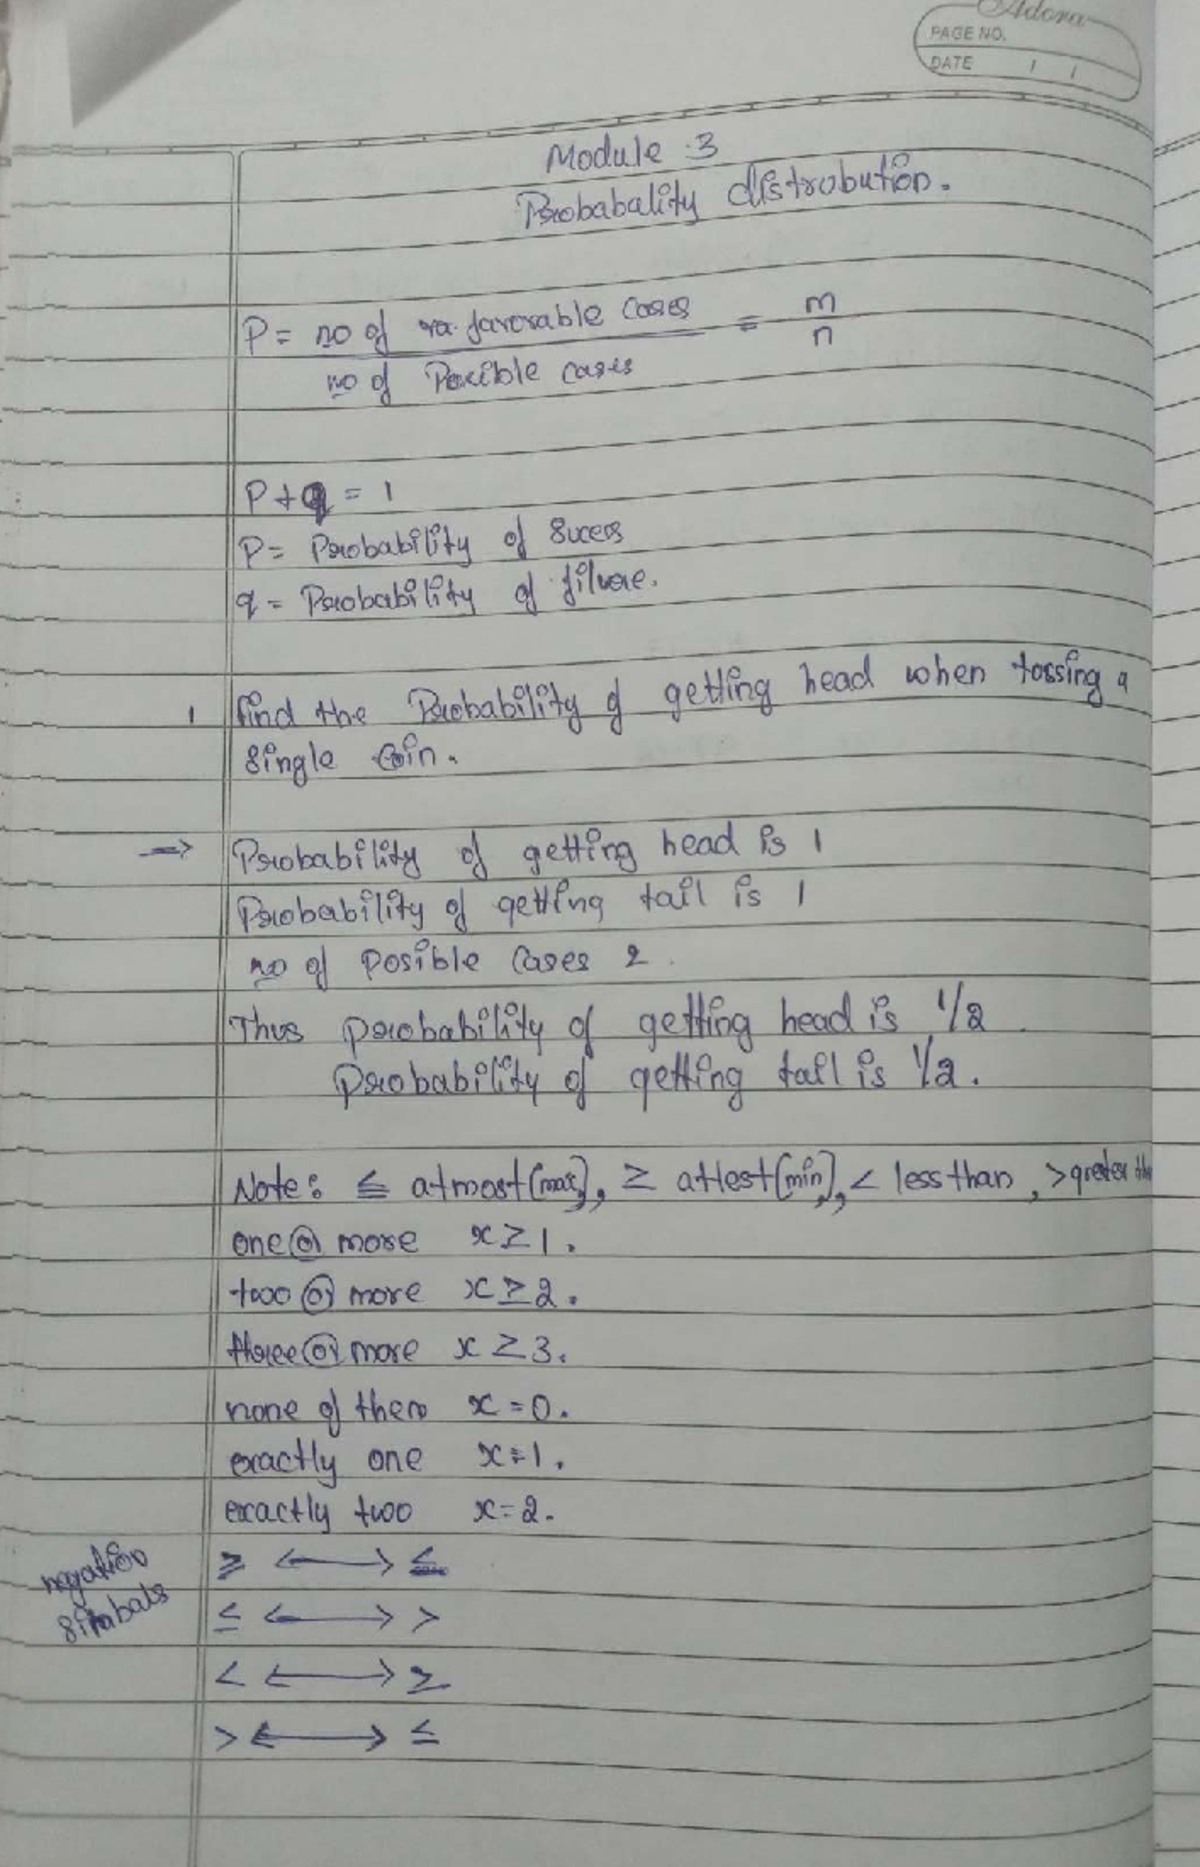 Adora
PAGE NO.
DATE / /
Module 3
Probabality distrobution.
P = no of favorable cases = m
no of Posible cases n
P + q = 1
P = Probability of Sucess
q = Probability of filure.
1 find the Probability of getting head when tossing a
single coin.
⇒ Probability of getting head is 1
Probability of getting tail is 1
no of posible cases 2.
Thus probability of getting head is 1/2.
Probability of getting tail is 1/2.
Note: ≤ atmost (max), ≥ attest (min), < less than, > greter
one or more x ≥ 1.
two or more x ≥ 2.
three or more x ≥ 3.
none of them x = 0.
exactly one x = 1.
exactly two x = 2.
negation ≥ ⟷ ≤
simbals ≤ ⟷ >
< ⟷ ≥
> ⟷ ≤